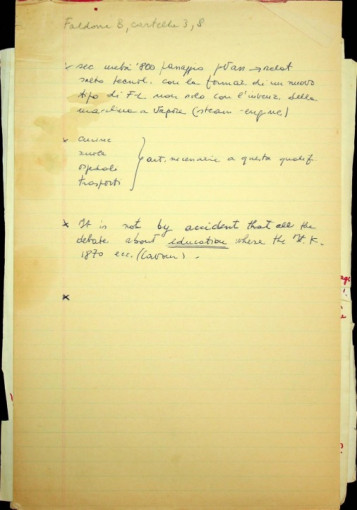 Faldone B, cartella 3, 8
sec. metà '800 passaggio
salto tecnol. con la formaz. di un nuovo
tipo di F-L non solo con l'invenz. della
macchina a vapore (steam-engine)
scuola
ospedale
trasporti
att. necessarie a questa qualif.
x It is not by accident that all the
debate about education where the U.K.
1870 ecc. (Lavoro).
x